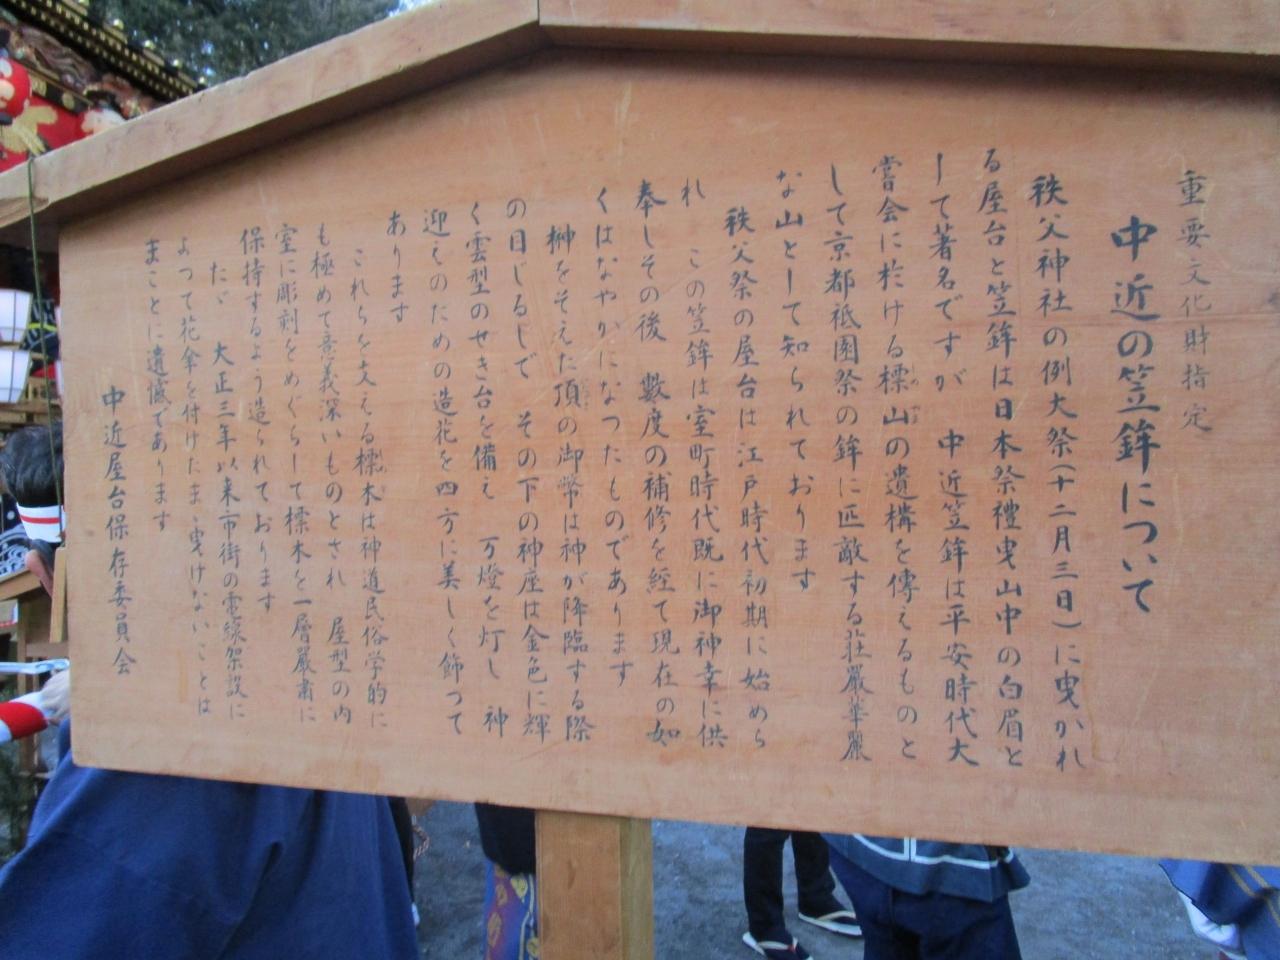 重要文化財指定
中近の笠鉾について
秩父神社の例大祭(十二月三日)に曳かれ
る屋台と笠鉾は日本祭禮曳山中の白眉と
して著名ですが　中近笠鉾は平安時代大
嘗会に於ける標山の遺構を傳えるものと
して京都祗園祭の鉾に匹敵する荘嚴華麗
な山として知られております
秩父祭の屋台は江戸時代初期に始めら
れ　この笠鉾は室町時代既に御神幸に供
奉しその後　數度の補修を経て現在の如
くはなやかになつたものであります
榊をそえた頂の御幣は神が降臨する際
の目じるしで　その下の神座は金色に輝
く雲型のせき台を備え　万燈を灯し　神
迎えのための造花を四方に美しく飾つて
あります
これらを支える標木は神道民俗学的に
も極めて意義深いものとされ　屋型の内
室に彫刻をめぐらして標木を一層嚴肅に
保持するよう造られております
たゞ　大正三年以来市街の電線架設に
よつて花傘を付けたまゝ曳けないことは
まことに遺憾であります
中近屋台保存委員会